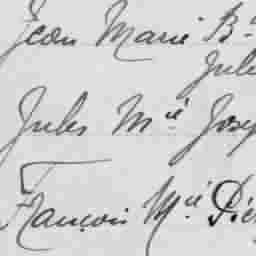 Jean Marie B
Jule
Jules Mie Josep
François Mie Pier